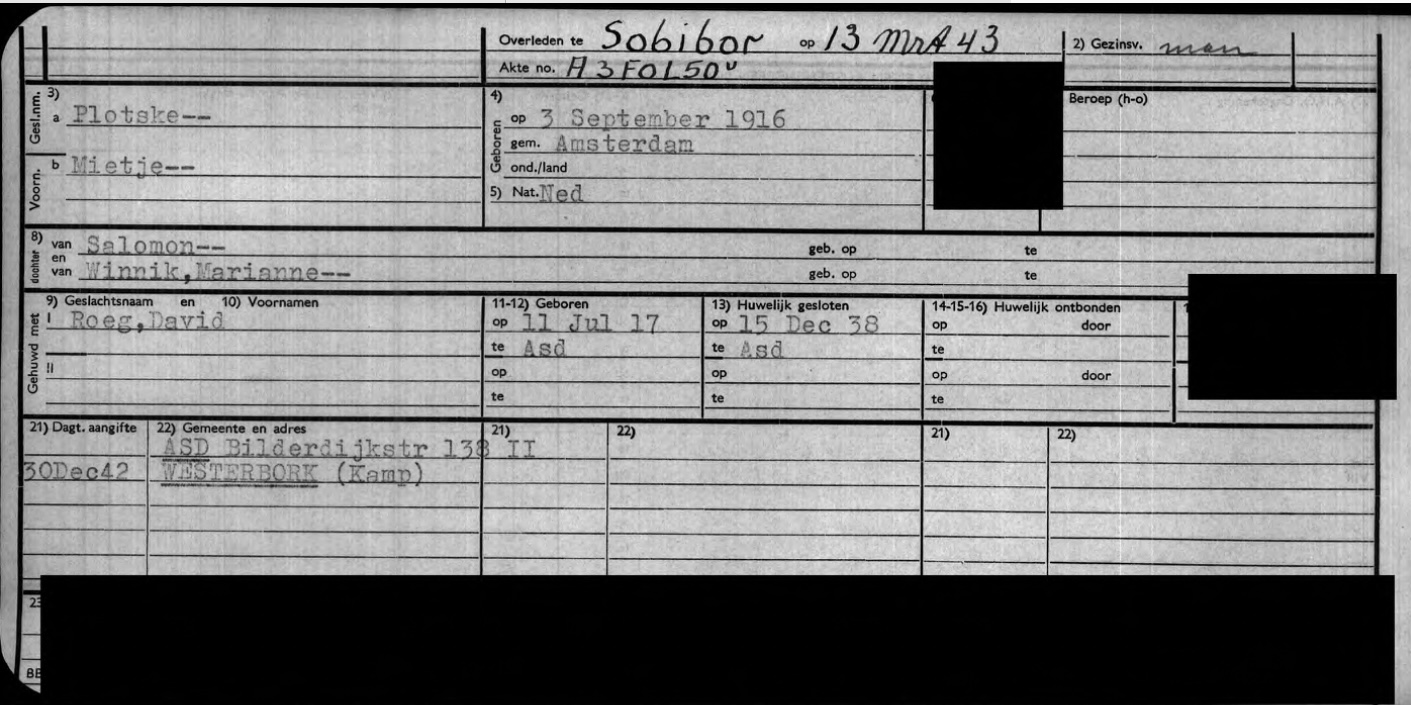 Overleden te Sobibor op 13 MrA 43 2) Gezinsv. man
Akte no. A 3 FOL 50v
Gesl.nm. 3) a Plotske--
Voorn. b Mietje--
4) Geboren op 3 September 1916
gem. Amsterdam
ond./land
5) Nat. Ned
Beroep (h-o)
dochter 8) van Salomon-- geb. op te
en van Winnik,Marianne-- geb. op te
Gehuwd met 9) Geslachtsnaam en 10) Voornamen 11-12) Geboren 13) Huwelijk gesloten 14-15-16) Huwelijk ontbonden
I Roeg,David op 11 Jul 17 op 15 Dec 38 op door
te Asd te Asd te
II op op op door
te te te
21) Dagt. aangifte 22) Gemeente en adres 21) 22) 21) 22)
ASD Bilderdijkstr 138 II
30Dec42 WESTERBORK (Kamp)
23
BE